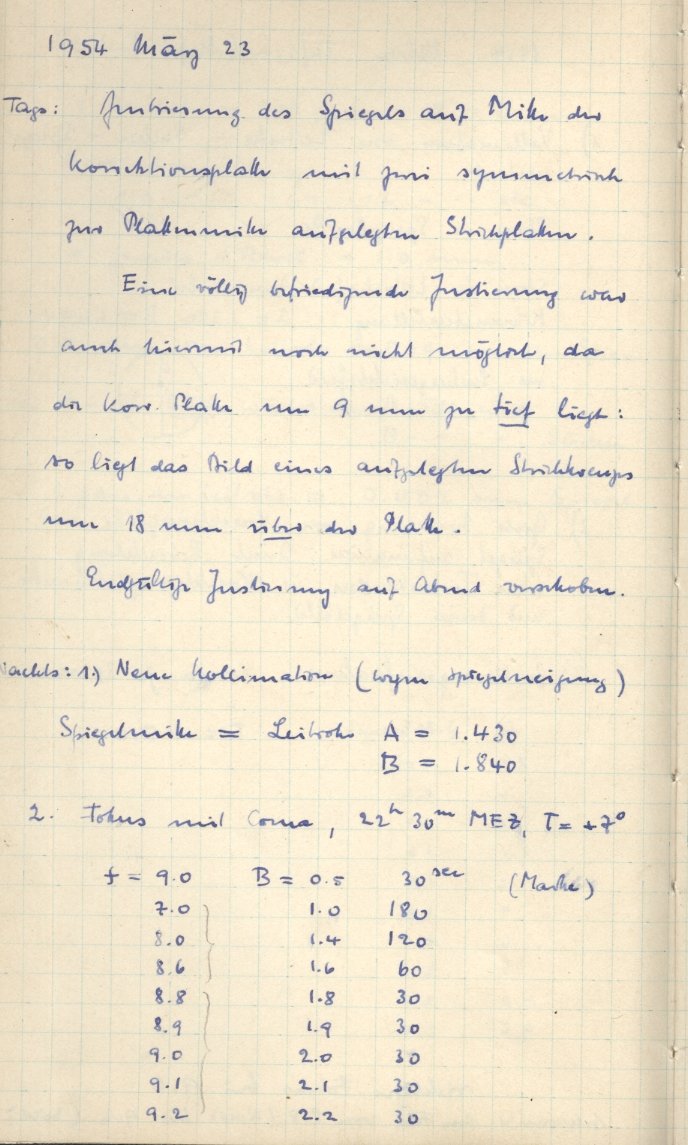 1954 März 23
Tags: Justierung des Spiegels auf Mitte der
Korrektionsplatte mit zwei symmetrisch
zur Plattenmitte aufgelegten Strichplatten.
Eine völlig befriedigende Justierung war
auch hiermit noch nicht möglich, da
die Korr. Platte um 9 mm zu tief liegt:
so liegt das Bild eines aufgelegten Strichkreuzes
um 18 mm über der Platte.
Endgültige Justierung auf Abend verschoben.
Nachts: 1.) Neue Kollimation (wegen Spiegelneigung)
Spiegelmitte = Leitrohr A = 1.430
B = 1.840
2. Fokus mit Coma, 22h 30m MEZ, T = +7°
f = 9.0 B = 0.5 30sec (Marke)
7.0 1.0 180
8.0 1.4 120
8.6 1.6 60
8.8 1.8 30
8.9 1.9 30
9.0 2.0 30
9.1 2.1 30
9.2 2.2 30